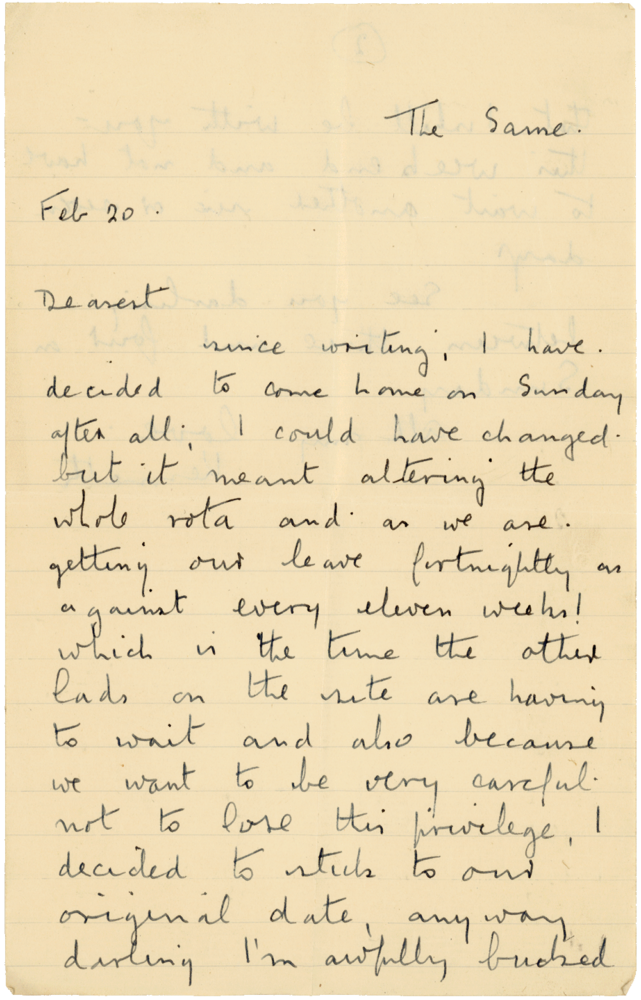 The Same.
Feb 20.
Dearest
since writing, I have
decided to come home on Sunday
after all; I could have changed
but it meant altering the
whole rota and as we are
getting our leave fortnightly as
against every eleven weeks!
which is the time the other
lads on the site are having
to wait and also because
we want to be very careful
not to lose this privilege, I
decided to stick to our
original date, anyway
darling I'm awfully bucked